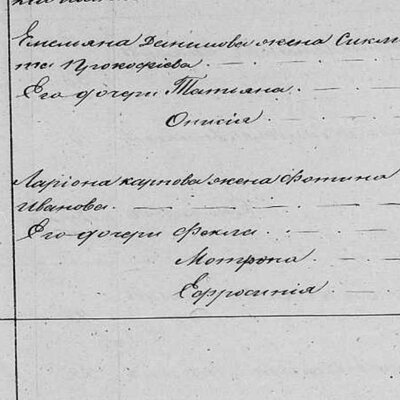 Емельяна Данилова жена Сикли
та Прокофіева
Его дочери Татіяна
Онисія
Ларіона карпова жена Фотина
Иванова
Его дочери Фекла
Мотрона
Ефросинія